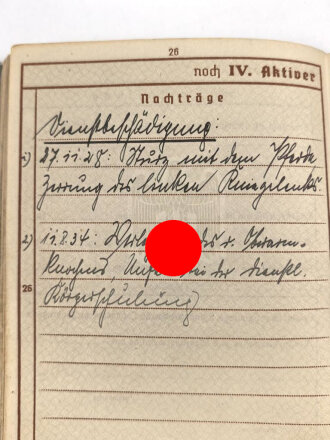 26
noch IV. Aktiver
Nachträge
Dienstbeschädigung:
1) 27.11.28: Sturz mit dem Pferde
Zerrung des linken Kniegelenks.
2) 11.8.34: des r. Oberarm-
knochens bei der dienstl.
26
Körperschulung